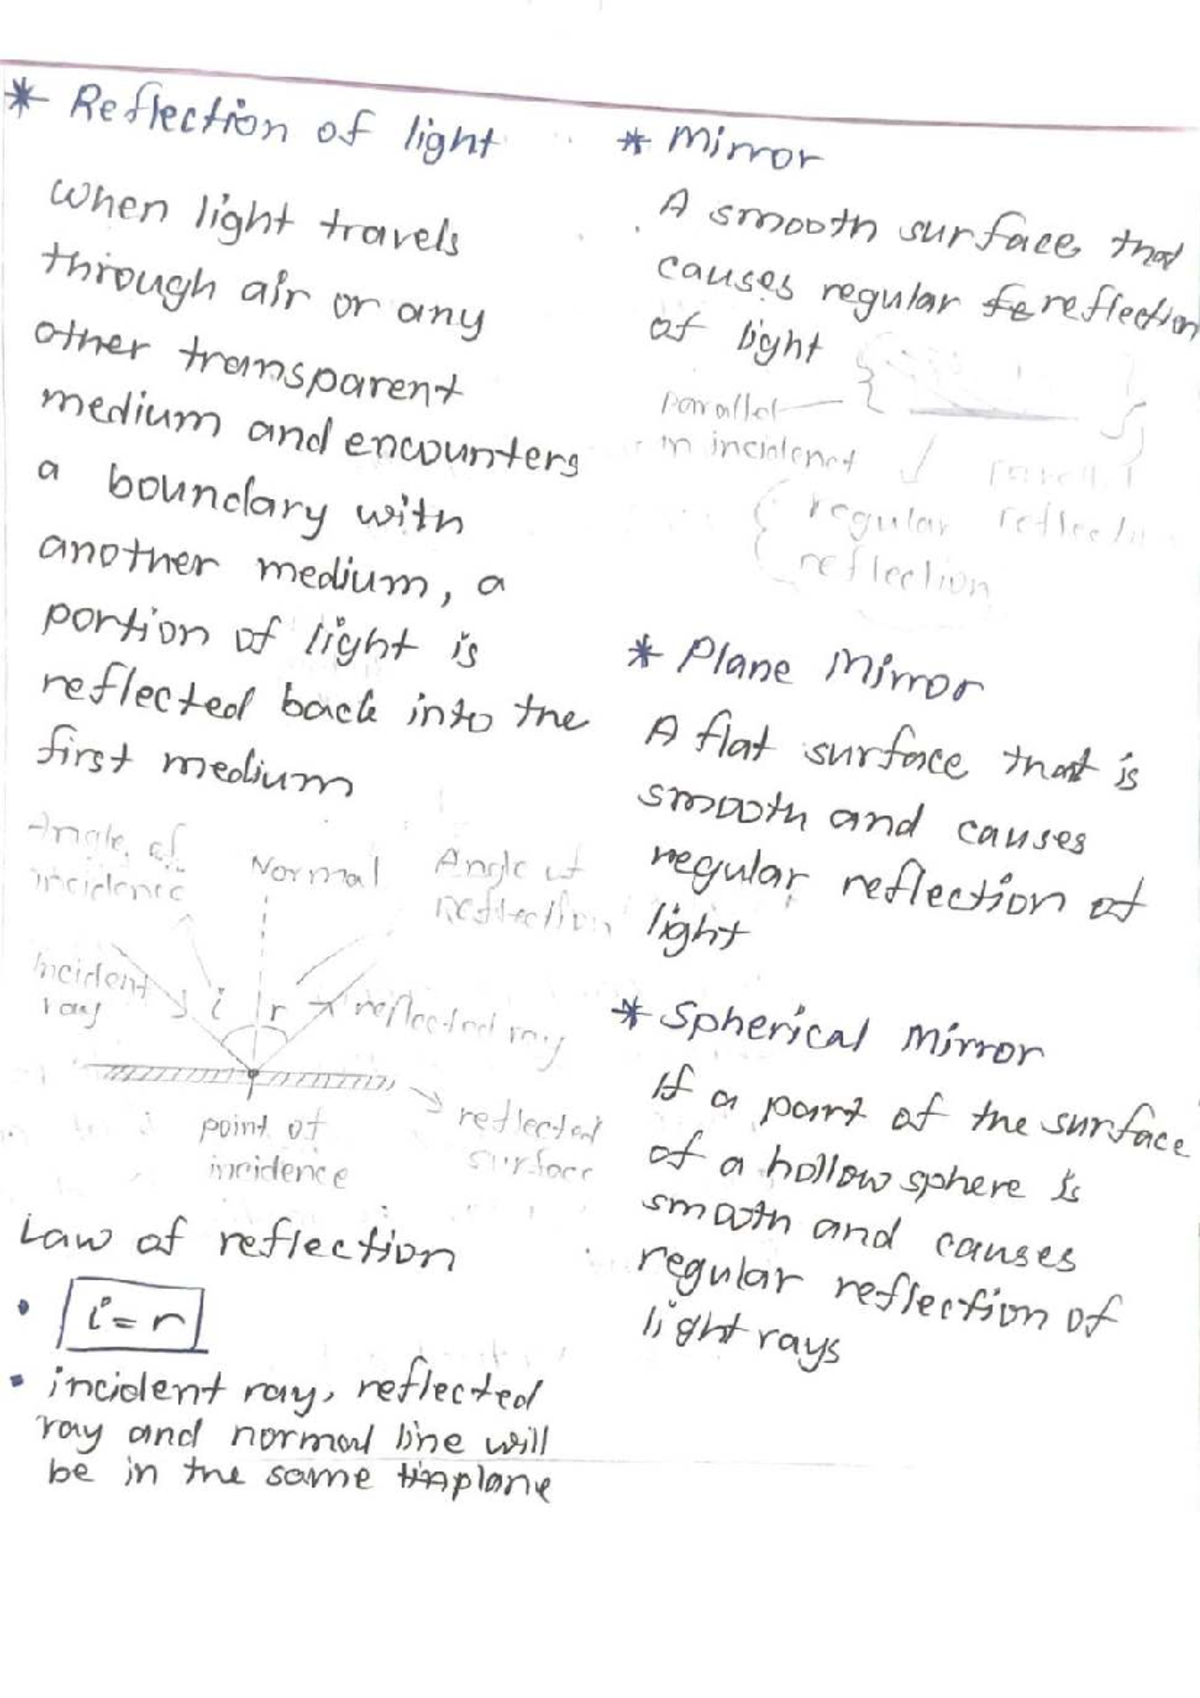 * Reflection of light
When light travels
through air or any
other transparent
medium and encounters
a boundary with
another medium, a
portion of light is
reflected back into the
first medium
Angle of
incidence
Normal
Angle of
reflection
Incident
ray
i
r
reflected ray
point of
incidence
reflected
surface
Law of reflection
• i = r
• incident ray, reflected
ray and normal line will
be in the same plane
* Mirror
A smooth surface that
causes regular reflection
of light
parallel
in incident
regular
reflection
* Plane Mirror
A flat surface that is
smooth and causes
regular reflection of
light
* Spherical Mirror
If a part of the surface
of a hollow sphere is
smooth and causes
regular reflection of
light rays